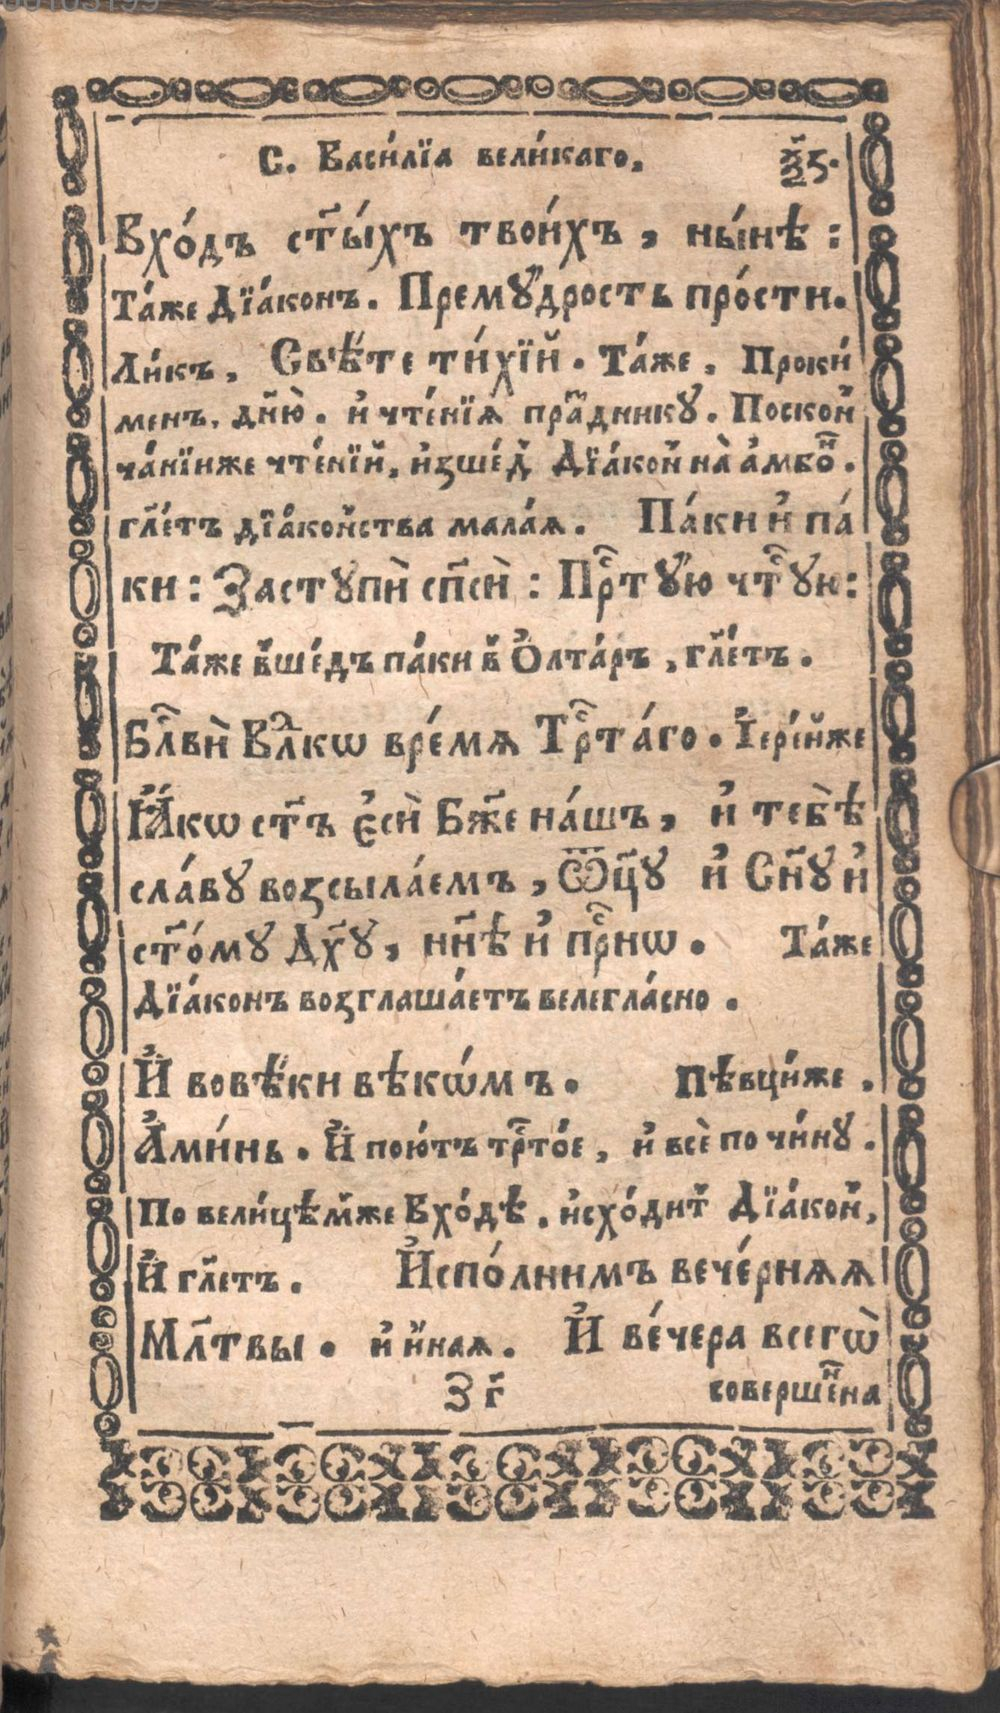 С. Васи́лїа вели́каго,
Вхо́дъ ст҃ы́хъ твои́хъ, ны́нѣ :
Та́же Дїа́конъ. Прему́дрость про́сти.
Ли́къ, Свѣ́те ти́хїй. Та́же, Проки́
менъ, дн҃ю̀. и҆ чте́нїѧ пра́здникꙋ. Поскон҆
ча́нїиже чте́нїй, и҆зше́д Дїа́кон на̀ а҆мбѡ́н.
гл҃етъ дїа́конства мала́ѧ. Па́ки и҆ па́
ки : Заступѝ сп҃сѝ : Прⷭ҇тꙋ́ю чⷭ҇тꙋю :
Та́же вше́дъ па́ки в Ѻ҆лта́ръ, гл҃етъ.
Блⷭ҇вѝ Влⷣкѡ вре́мѧ Трⷭ҇та́го. І҆ере́йже
Ꙗ҆́кѡ ст҃ъ є҆сѝ Бж҃е на́шъ, и҆ тебѣ̀
сла́вꙋ возсыла́емъ, Ѿц҃ꙋ и҆ Сн҃ꙋ и҆
ст҃о́мꙋ Дх҃ꙋ, нн҃ѣ и҆ прⷭ҇нѡ. Та́же
Дїа́конъ возглаша́етъ велегла́сно.
И҆ вовѣ́ки вѣкѡ́мъ. Пѣвци́же.
А҆ми́нь. И҆ пою́тъ трⷭ҇то́е, и҆ всѐ по чи́нꙋ.
По вели́цѣмже Вхо́дѣ, и҆схо́дит Дїа́кон,
И҆ гл҃етъ. И҆спо́лнимъ вече́рнѧѧ
Мл҃твы. и҆ и҆́наѧ. И҆ ве́чера всегѡ̀
З г҃ соверше́нна